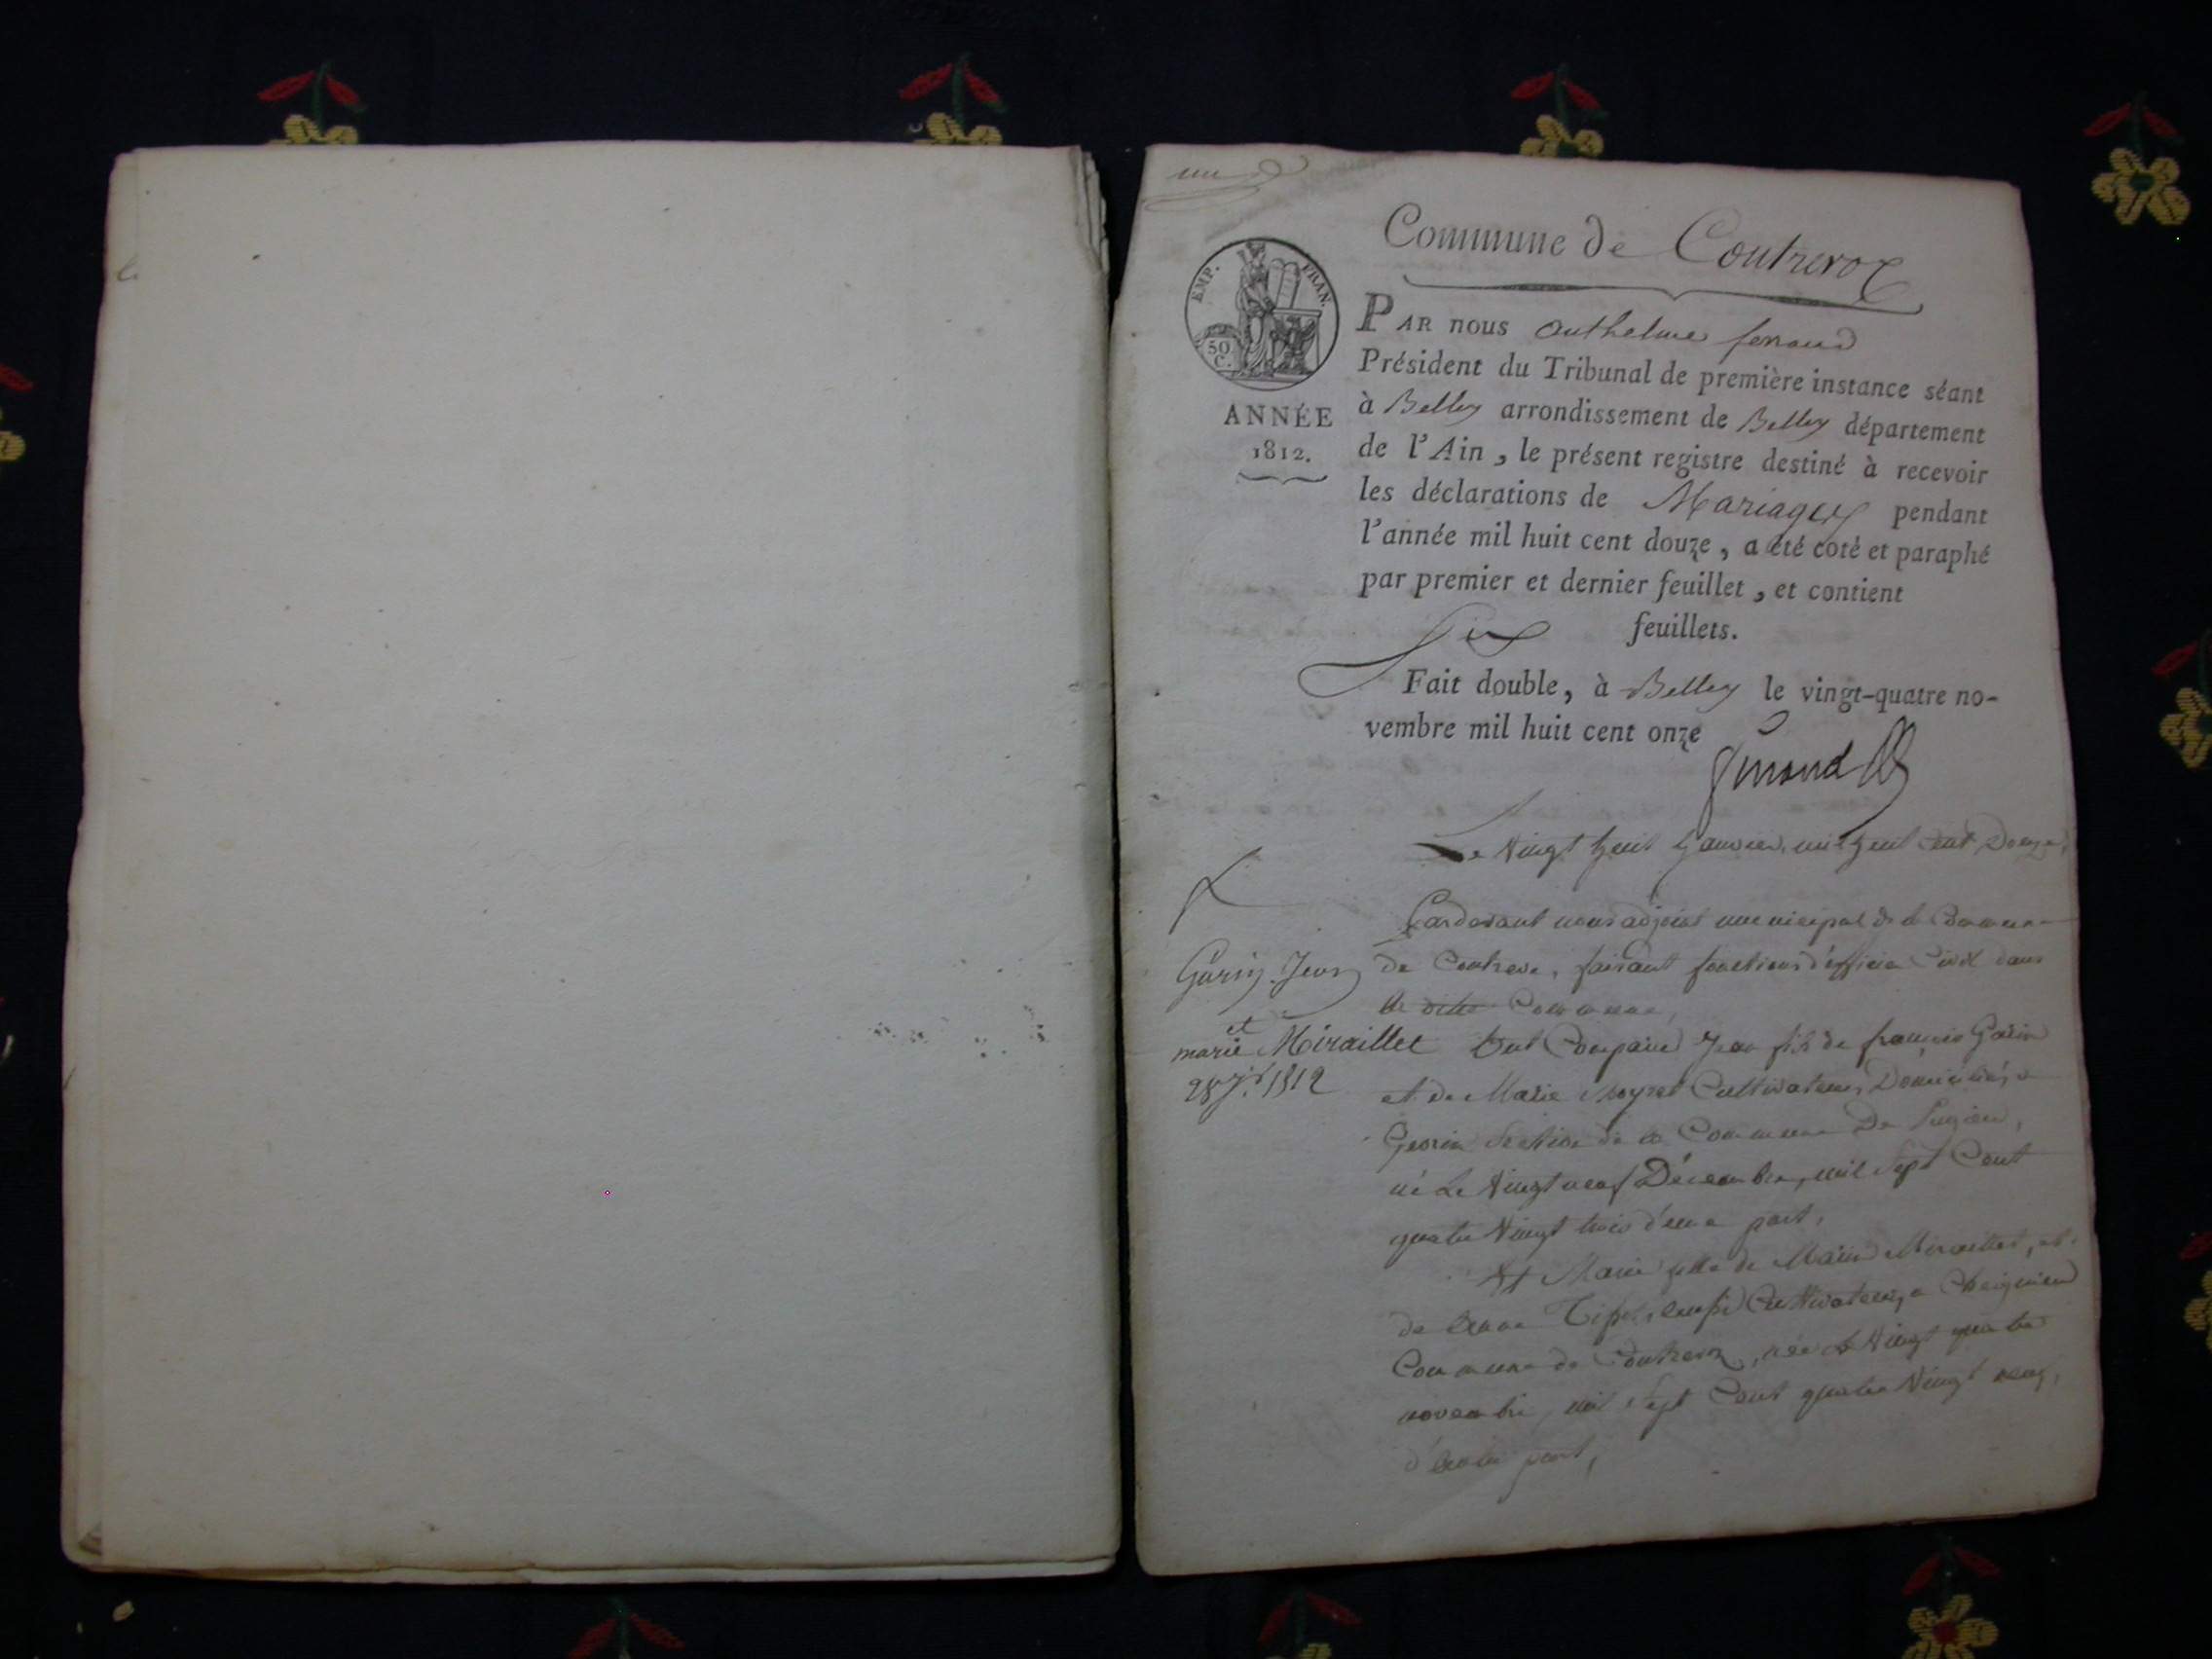 un
Commune de Contrevoz
EMP. FRAN.
50 C.
ANNÉE
1812.
PAR nous anthelme ferrand
Président du Tribunal de première instance séant
à Belley arrondissement de Belley département
de l'Ain, le présent registre destiné à recevoir
les déclarations de Mariages pendant
l'année mil huit cent douze, a été coté et paraphé
par premier et dernier feuillet, et contient
Six feuillets.
Fait double, à Belley le vingt-quatre no-
vembre mil huit cent onze
Le Vingt huit Janvier mil huit Cent Douze,
Pardevant nous adjoint municipal de la Commune
de Contrevo, faisant fonctions d'officier Civil dans
la dite Commune,
Garin Jean
et
marie Miraillet
28 jr. 1812
Ont Comparu Jean fils de françois Garin
et de Marie Cultivateurs Domiciliés a
section de la Commune De Pugieu,
né Le Vingt neuf Décembre, mil Sept Cent
quatre Vingt trois d'une part,
Et Marie fille de Miraillet, et
de Cultivateurs a Cheignieu
Commune de Contrevoz, née le Vingt quatre
novembre, mil Sept Cent quatre Vingt neuf,
d'autre part,